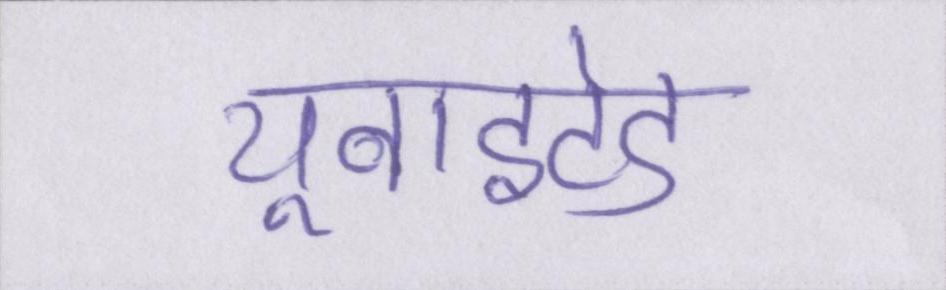 यूनाइटेड